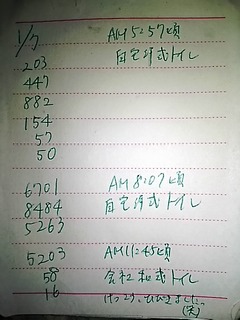 1/7 AM5:57頃
203 自宅洋式トイレ
447
882
154
57
50
6701 AM8:07頃
8484 自宅洋式トイレ
5263
5203 AM11:45頃
58 会社和式トイレ
16 けっこう、ひびきました。
(笑)